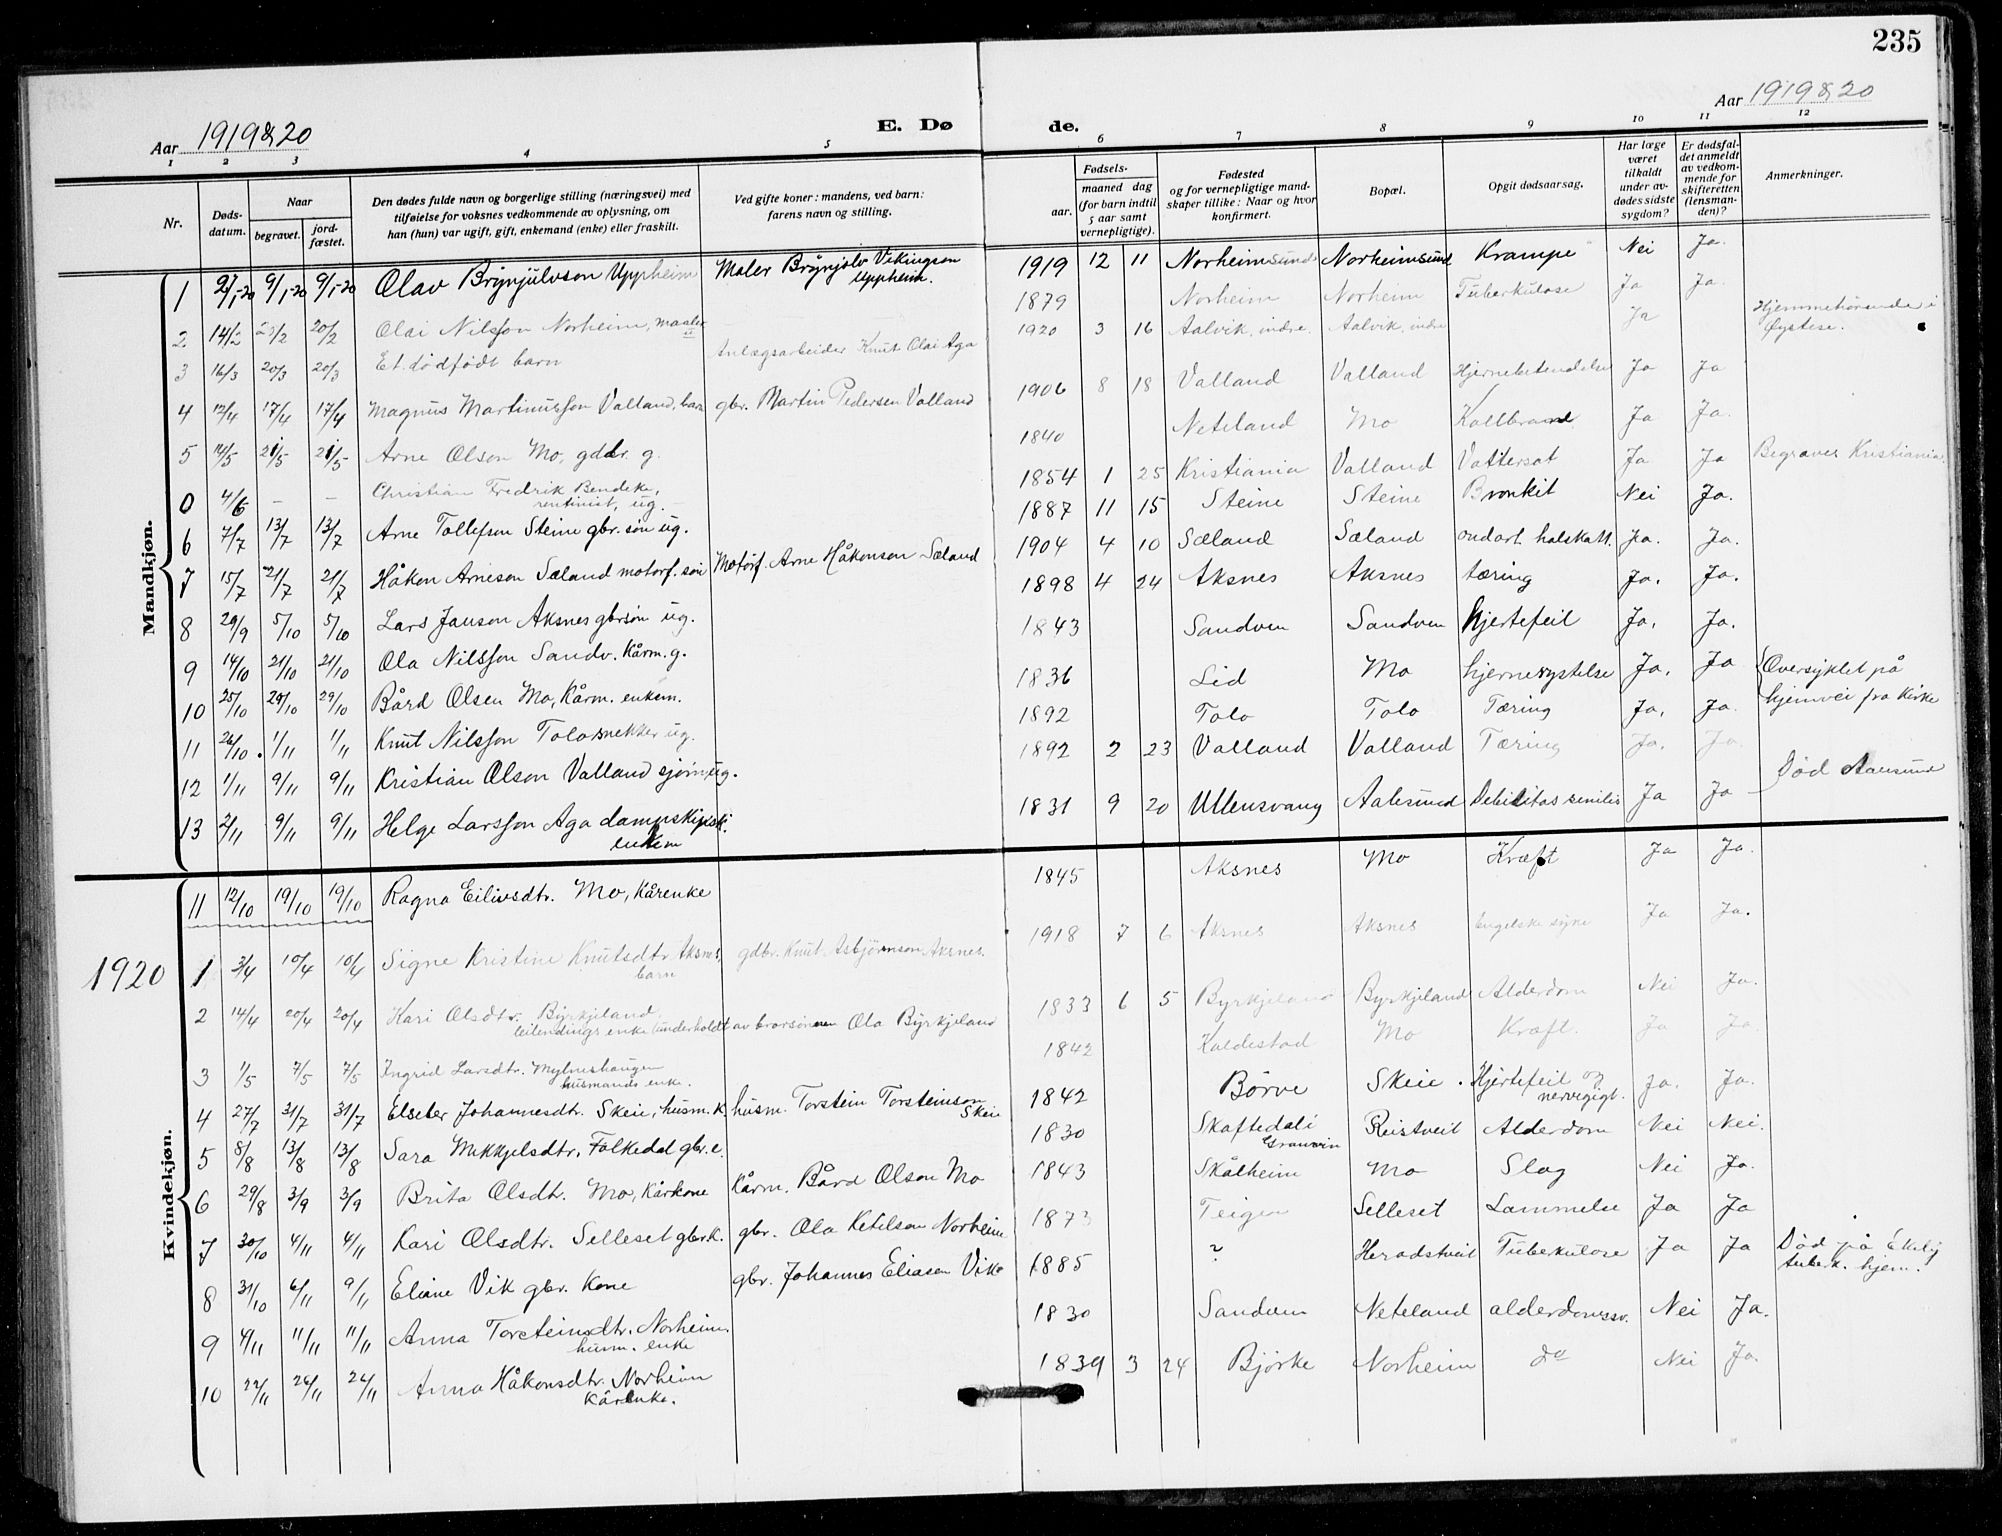 235
Aar 1919 & 20
E. Dø de.
Aar 1919 & 20
1 2 3 4 5 6 7 8 9 10 11 12
Nr.
Døds-datum.
Naar
begravet.
jord-fæstet.
Den dødes fulde navn og borgerlige stilling (næringsvei) med
tilføielse for voksnes vedkommende av oplysning, om
han (hun) var ugift, gift, enkemand (enke) eller fraskilt.
Ved gifte koner: mandens, ved barn:
farens navn og stilling.
Fødsels-
aar.
maaned dag
(for barn indtil
5 aar samt
vernepligtige).
Fødested
og for vernepligtige mand-
skaper tillike: Naar og hvor
konfirmert.
Bopæl.
Opgit dødsaarsag.
Har læge
været
tilkaldt
under av-
dødes sidste
sygdom?
Er dødsfal-
det anmeldt
av vedkom-
mende for
skifteretten
(lensman-
den)?
Anmerkninger.
Mandkjøn.
1 2/1-20 9/1-20 9/1-20 Olav Brynjulvson Uppheim Maler Brynjolv Vikingson Uppheim. 1919 12 11 Norheimsund Norheimsund Krampe Nei Ja.
2 14/2 20/2 Olai Nilsson Norheim, maaler 1879 Norheim Norheim Tuberkulose Ja Ja.
3 16/3 20/3 20/3 Et dødfødt barn Anlægsarbeider Knut Olai Aga 1920 3 16 Aalvik, indre. Aalvik, indre Ja Hjemmehørende i Øystese.
4 12/4 17/4 17/4 Magnus Martinusson Valland, barn gbr. Martin Pedersen Valland 1906 8 18 Valland Valland Hjernebetendelse Ja Ja
5 14/5 21/5 21/5 Arne Olson Mo, gdbr. g. 1840 Neteland Mo Kollbrand Ja Ja.
0 4/6 - - Christian Fredrik Bendeke, rentinist, ug. 1854 1 25 Kristiania Valland Vattersot Ja Ja Begraves Kristiania.
6 7/7 13/7 13/7 Arne Tollefson Steine gbr. søn ug. 1887 11 15 Steine Steine Bronkit Nei Ja.
7 15/7 21/7 21/7 Håkon Arneson Sæland motorf. søn Motorf. Arne Håkonson Sæland 1904 4 10 Sæland Sæland ondart. halskatt. Ja. Ja.
8 29/9 5/10 5/10 Lars Janson Aksnes gbrsøn ug. 1898 4 24 Aksnes Aksnes tæring Ja. Ja.
9 14/10 21/10 21/10 Ola Nilsson Sandv. Kårm. g. 1843 Sandven Sandven hjertefeil Ja. Ja.
10 25/10 29/10 29/10 Bård Olsen Mo, Kårm. enkem. 1836 Lid Mo hjernerystelse Ja. Ja Oversyklet på hjemvei fra kirke
11 26/10. 1/11 1/11 Knut Nilsson Tolo snekker ug. 1892 Tolo Tolo Tæring Ja. Ja.
12 1/11 9/11 9/11 Kristian Olson Valland sjøm. ug. 1892 2 23 Valland Valland Tæring Ja. Ja
13 2/11 9/11 9/11 Helge Larsson Aga dampskipsk. enkem 1831 9 20 Ullensvang Aalesund Debilitas senilis Ja Ja Død Aalesund
Kvindekjøn.
11 12/10 19/10 19/10 Ragna Eilivsdtr. Mo, Kårenke 1845 Aksnes Mo Kræft Ja Ja.
1920
1 3/4 10/4 10/4 Signe Kristine Knutsdtr. Aksnes, barn gdbr. Knut Asbjørnson Aksnes. 1918 7 6 Aksnes Aksnes Engelske syke Ja Ja.
2 14/4 20/4 20/4 Kari Olsdtr. Byrkjeland, leilendings enke (underholdt av brorsønnen Ola Byrkjeland 1833 6 5 Byrkjeland Byrkjeland Alderdom Nei Ja.
3 1/5 7/5 7/5 Ingrid Larsdtr. Mylnushaugen husmands enke. 1842 Kaldestad Mo Kræft. Ja Ja.
4 27/7 31/7 31/7 Elseber Johannesdtr. Skeie, husm. k. husm. Torstein Torsteinson Skeie 1842 Børve Skeie. Hjertefeil og nervegigt. Ja. Ja.
5 8/8 13/8 13/8 Sara Mikkjelsdtr. Folkedal gbr. e. 1830 Skaftedal i Granvin Reistveit Alderdom Nei Nei.
6 29/8 3/9 3/9 Brita Olsdtr. Mo, Kårkone Kårm. Bård Olson Mo 1843 Skålheim Mo Slag Nei Ja.
7 30/10 4/11 4/11 Kari Olsdtr. Selleset gbr. k. gbr. Ola Ketilson Norheim 1873 Teigen Selleset Lammelse Ja Ja
8 31/10 6/11 9/11 Eliane Vik gbr. Kone gbr. Johannes Eliasen Vik 1885 ? Heradstveit Tuberkulose Ja Ja Død på Ekely tuberk. hjem.
9 4/11 11/11 11/11 Anna Torsteinsdtr. Norheim. husm. enke 1830 Sandven Neteland alderdomssv. Nei Ja.
10 22/11 26/11 26/11 Anna Håkonsdtr. Norheim Kårenke. 1839 3 24 Bjørke Norheim do Nei Ja.